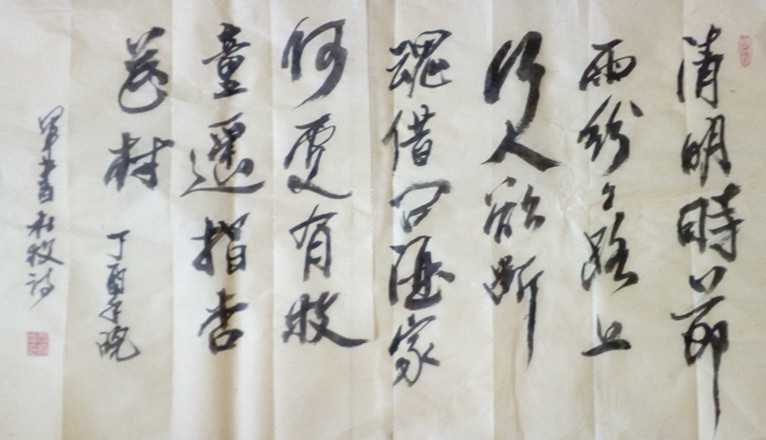 清明時節
雨紛々路上
行人欲斷
魂借问酒家
何處有牧
童遥指杏
花村
丁酉年
書杜牧诗